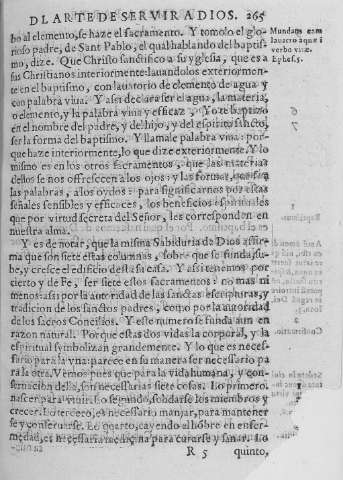 DL ARTE DE SERVIR A DIOS. 265
bo al elemento, se haze el sacramento. Y tomolo el glo-
rioso padre, de Sant Pablo, el qual hablando del baptis-
mo, dize. Que Christo sanctifico a su yglesia, que es a
sus Christianos interiormente: lauandolos exteriormen-
te en el baptismo, con lauatorio de elemento de agua y
con palabra viua. Y assi declara ser el agua, la materia,
o elemento, y la palabra viua y efficaz, Yo te baptizo
en el nombre del padre, y del hijo, y del espiritu sancto,
ser la forma del baptismo. Y llamale palabra viua: por-
que haze interiormente, lo que dize exteriormente. Y lo
mismo es en los otros sacramentos, que las materias
dellos se nos offrescen a los ojos: y las formas, que son
las palabras, a los oydos: para significarnos por estas
señales sensibles y efficaces, los beneficios spirituales
que por virtud secreta del Señor, les corresponden en
nuestra alma.
Y es de notar, que la misma Sabiduria de Dios affir-
ma que son siete estas columnas, sobre que se funda, su-
be, y cresce el edificio desta su casa. Y assi tenemos por
cierto y de Fe, ser siete estos sacramentos: no mas ni
menos: assi por la autoridad de las sanctas escripturas, y
tradicion de los sanctos padres, como por la autoridad
de los sacros Concilios. Y este numero se funda aun en
razon natural. Porque estas dos vidas la corporal, y la
espiritual symbolizan grandemente. Y lo que es neces-
sario para la vna: parece en su manera ser necessario pa
ra la otra. Vemos pues que para la vida humana, y con-
seruacion della, son necessarias siete cosas. Lo primero,
nascer para viuir. Lo segundo, soldarse los miembros y
crecer. Lo tercero, es necessario manjar, para mantener
se y conseruarse. Lo quarto, cayendo el hombre en enfer-
medad, es necessaria medicina para curarse y sanar. Lo
R 5 quinto,
Mundans eam
lauacro aquæ i
verbo vitæ.
Ephes. 5.